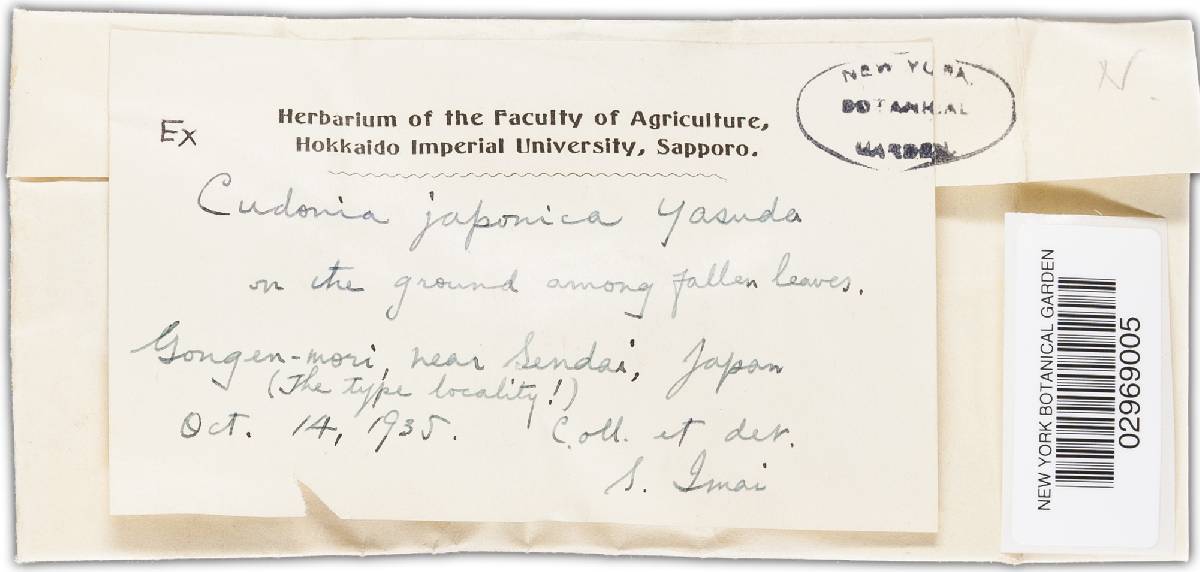 Ex
Herbarium of the Faculty of Agriculture,
Hokkaido Imperial University, Sapporo.
NEW YORK
BOTANICAL
GARDEN
N.
Cudonia japonica Yasuda
on the ground among fallen leaves.
Gongen-mori, near Sendai, Japan
(The type locality!)
Oct. 14, 1935. Coll. et det.
S. Imai
NEW YORK BOTANICAL GARDEN
02969005